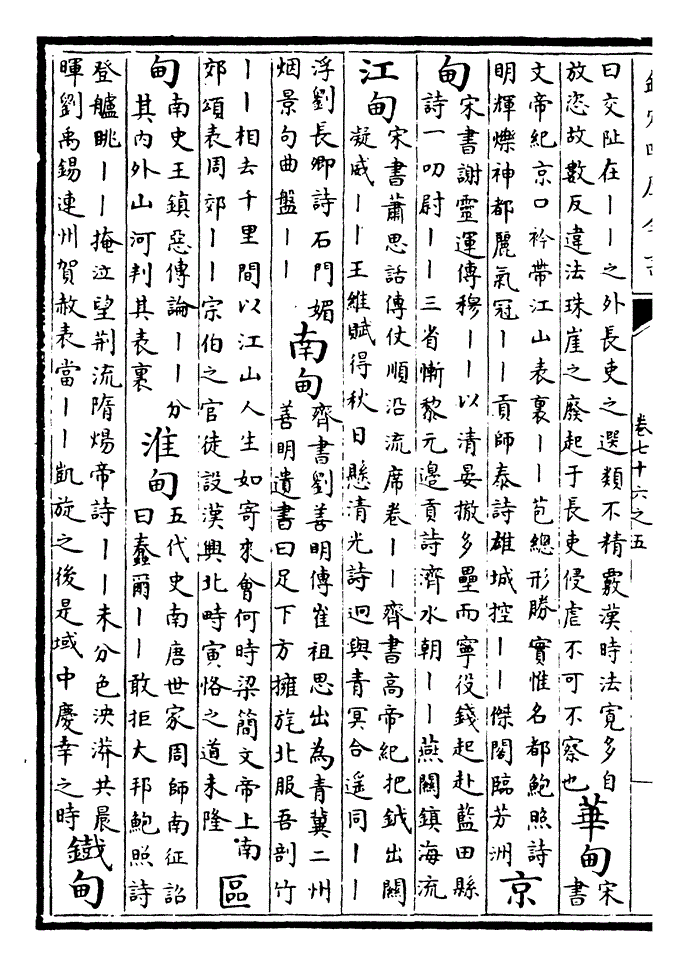 欽定四庫全書
卷七十六之五
曰交阯在丨丨之外長吏之選類不精覈漢時法寬多自
放恣故數反違法珠崖之廢起于長吏侵虐不可不察也
華甸
宋
書
文帝紀京口衿帶江山表裏丨丨苞總形勝實惟名都鮑照詩
明輝爍神都麗氣冠丨丨貢師泰詩雄城控丨丨傑閣臨芳洲
京
甸
宋書謝靈運傳穆丨丨以清晏撤多壘而寧役錢起赴藍田縣
詩一叨尉丨丨三省慚黎元邊貢詩濟水朝丨丨燕關鎮海流
江甸
宋書蕭思話傳仗順沿流席卷丨丨齊書高帝紀把鉞出關
凝威丨丨王維賦得秋日懸清光詩迥與青冥合遥同丨丨
浮劉長卿詩石門媚
烟景句曲盤丨丨
南甸
齊書劉善明傳崔祖思出為青冀二州
善明遺書曰足下方擁旄北服吾剖竹
丨丨相去千里間以江山人生如寄來會何時梁簡文帝上南
郊頌表周郊丨丨宗伯之官徒設漢興北畤寅恪之道未隆
區
甸
南史王鎮惡傳論丨丨分
其内外山河判其表裏
淮甸
五代史南唐世家周師南征詔
曰蠢爾丨丨敢拒大邦鮑照詩
登艫眺丨丨掩泣望荆流隋煬帝詩丨丨未分色泱漭共晨
暉劉禹錫連州賀赦表當丨丨凱旋之後是域中慶幸之時
鐵甸